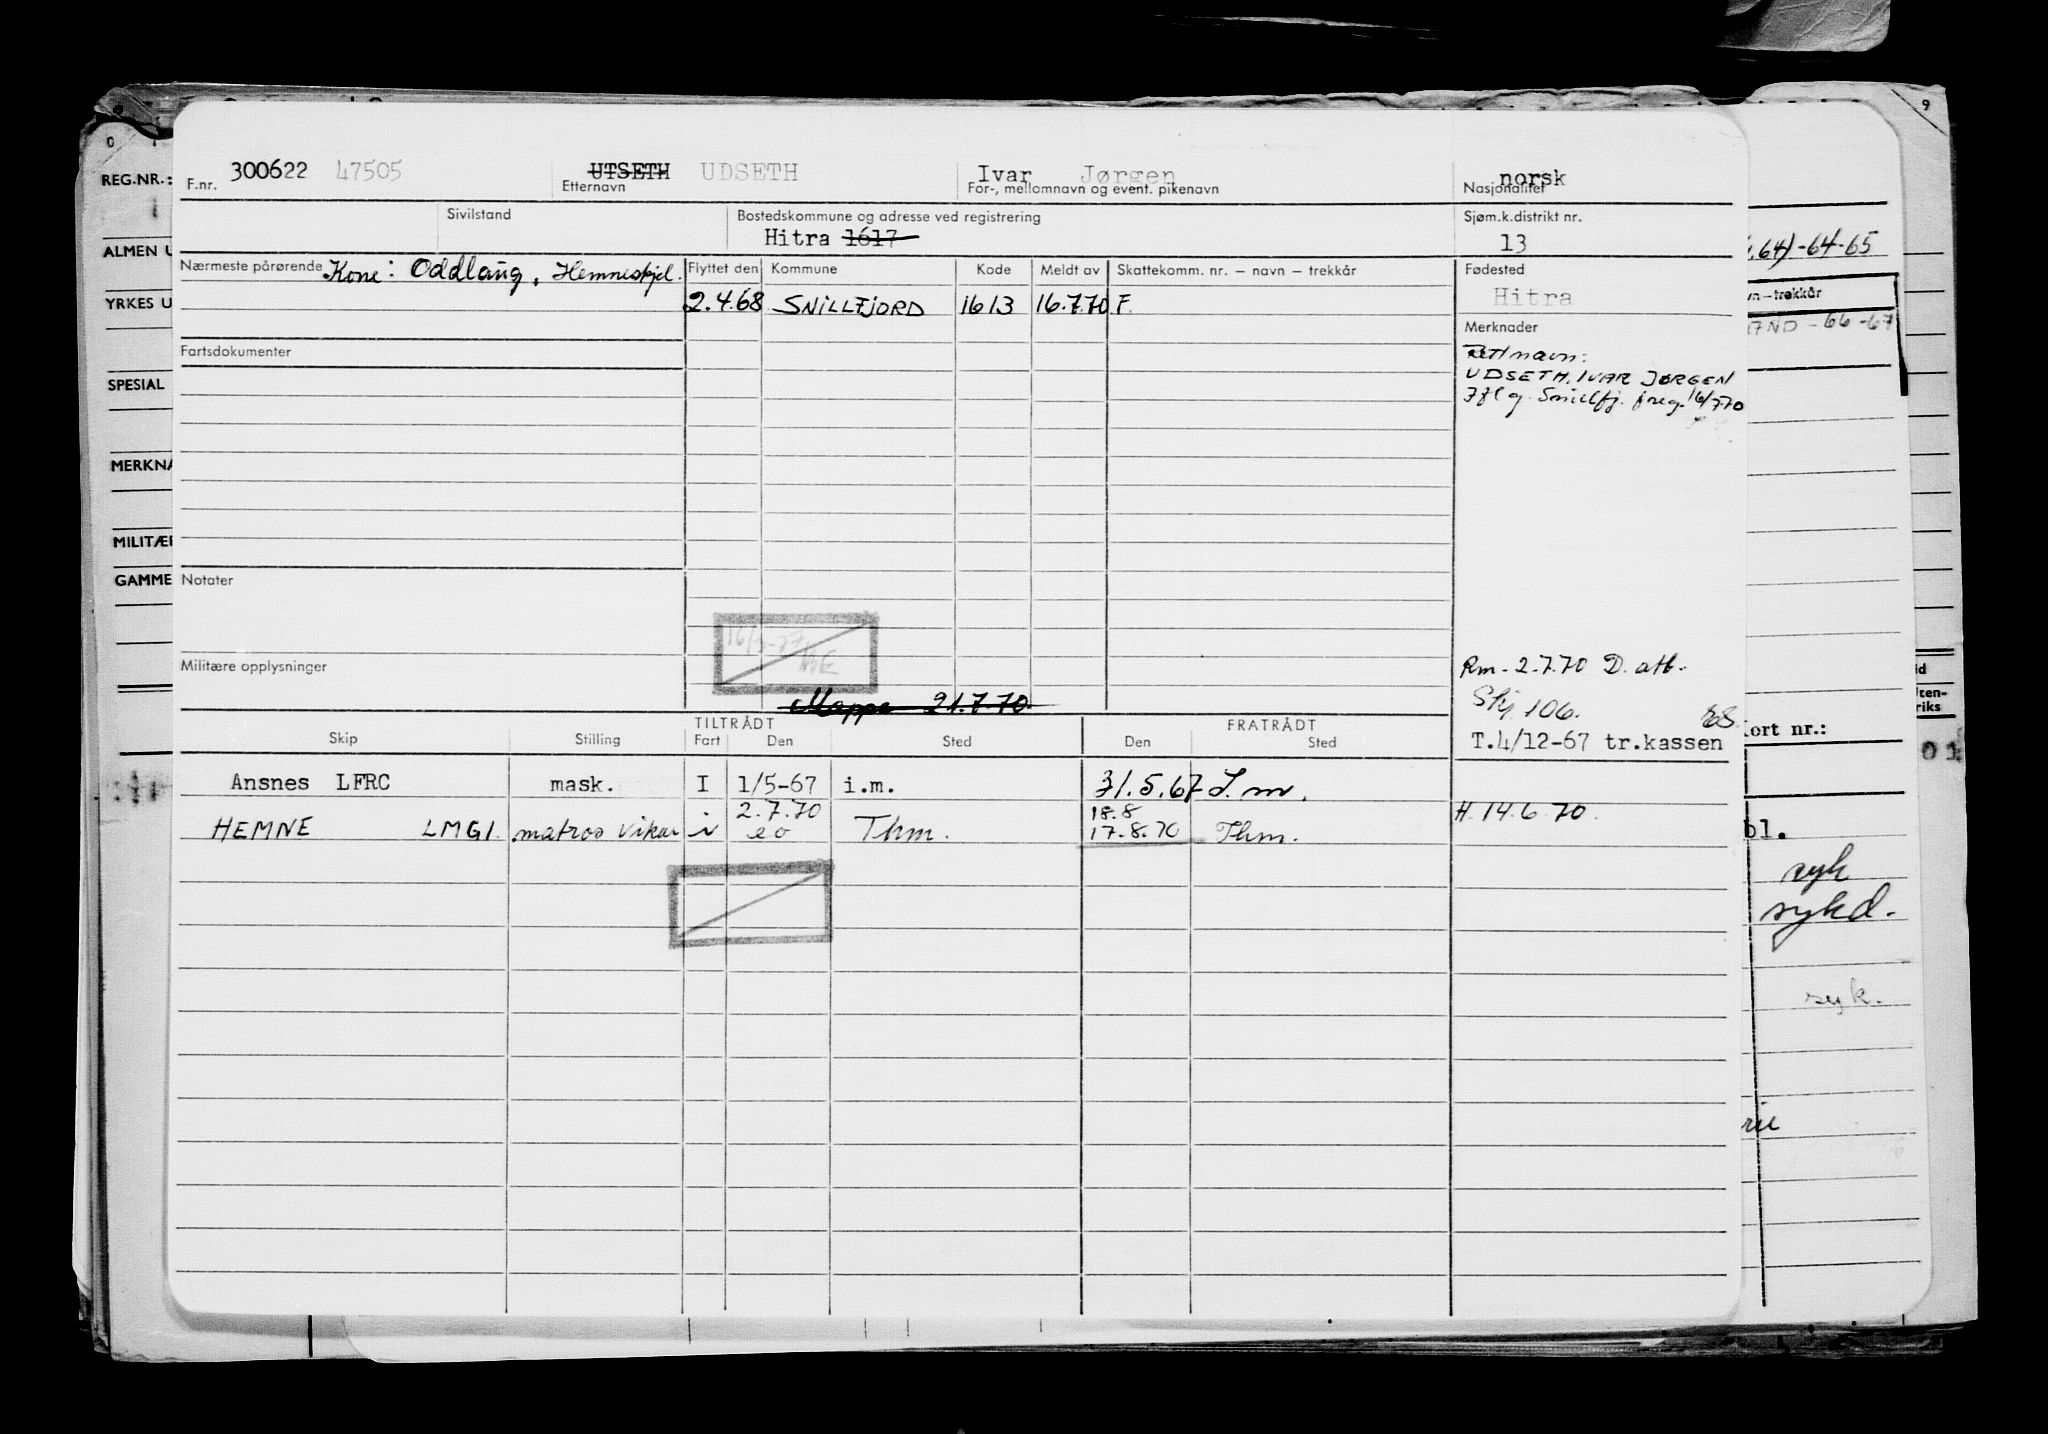 300622 47505 UTSETH UDSETH Ivar Jørgen norsk
F.nr. Etternavn For-, mellomnavn og event. pikenavn Nasjonalitet
Sivilstand Bostedskommune og adresse ved registrering Sjøm.k.distrikt nr.
Hitra 1617 13
Nærmeste pårørende Kone: Oddlaug, Hemneskjel. Flyttet den Kommune Kode Meldt av Skattekomm. nr. – navn – trekkår Fødested
2.4.68 SNILLFJORD 1613 16.7.70 F. Hitra
Merknader
Fartsdokumenter Rett navn:
UDSETH, IVAR JØRGEN
Iflg. Snillfj. freg. 16/7 70
Notater
Militære opplysninger Rm - 2.7.70 D. att.
Mappe 21.7.70
Skj 106. 68
TILTRÅDT FRATRÅDT
Skip Stilling Fart Den Sted Den Sted T.4/12-67 tr.kassen
Ansnes LFRC mask. I 1/5-67 i.m. 31.5.67 I.m.
2.7.70 18.8
HEMNE LMGI. matros vikar i eo Thm. 17.8.70 Thm. H. 14.6.70.
REG.NR.:
ALMEN U
YRKES U
SPESIAL
MERKNA
MILITÆR
GAMME
64)-64-65
vn – trekkår
AND - 66 - 67
id
Uten-
riks
Kort nr.:
01
bl.
syk
sykd.
syk.